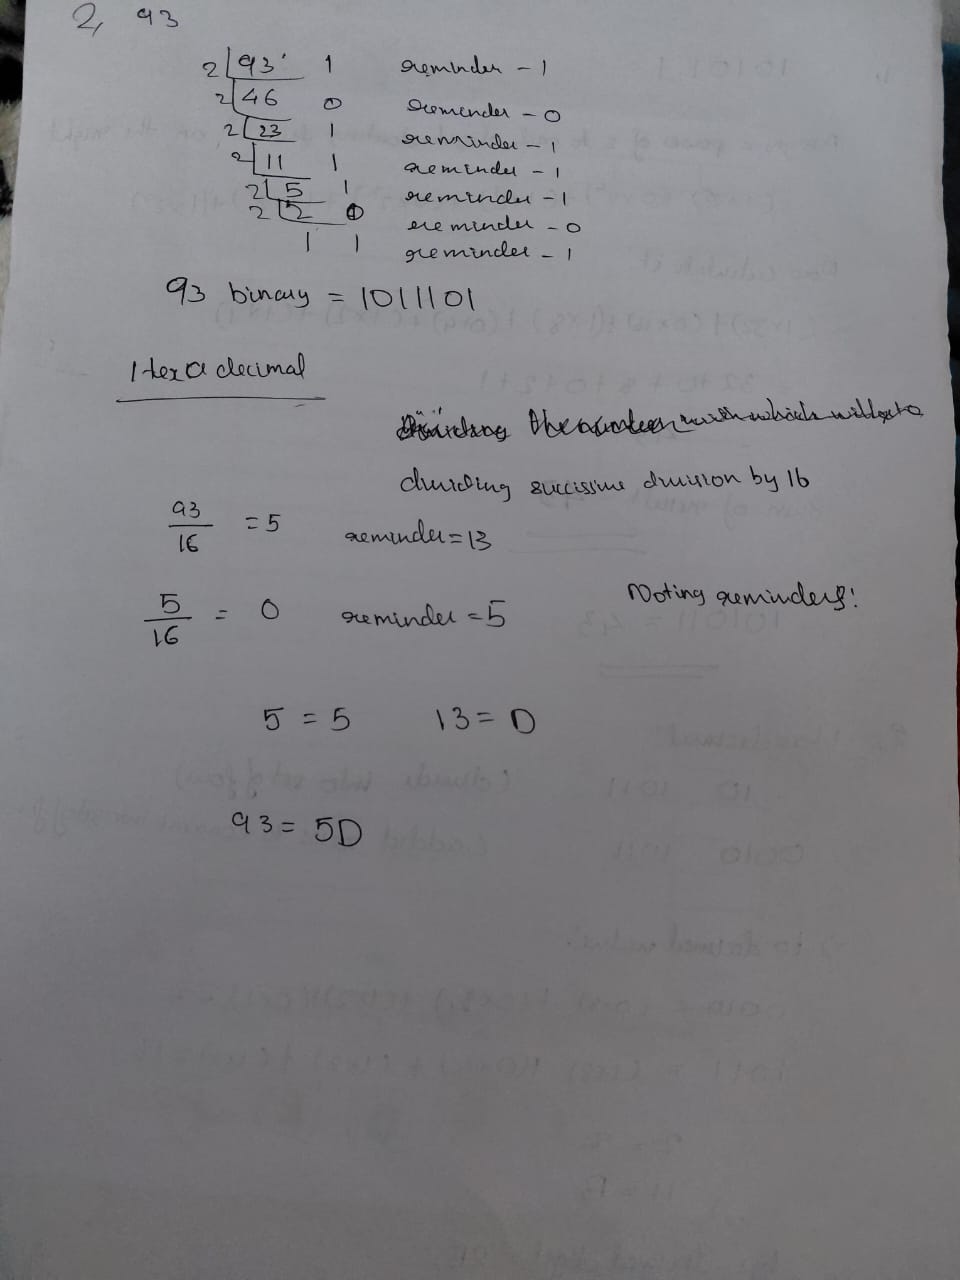 2, 93
2 93 1 reminder - 1
2 46 0 remender - 0
2 23 1 reminder - 1
2 11 1 reminder - 1
2 5 1 reminder - 1
2 2 0 reminder - 0
1 1 reminder - 1
93 binary = 1011101
Hexa decimal
dividing successive division by 16
93/16 = 5 reminder = 13
Noting reminders:
5/16 = 0 reminder = 5
5 = 5 13 = D
93 = 5D